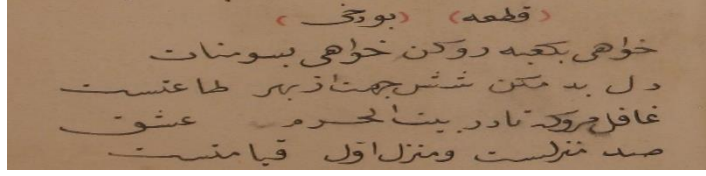 (قطعه) (بورخی)
خواهی بکعبه روکن خواهی بسومنات
دل بد مکن شش جهت از بهر طاعتست
غافل مرو که تا در بیت الحرم عشق
صد منزلست و منزل اول قیامتست